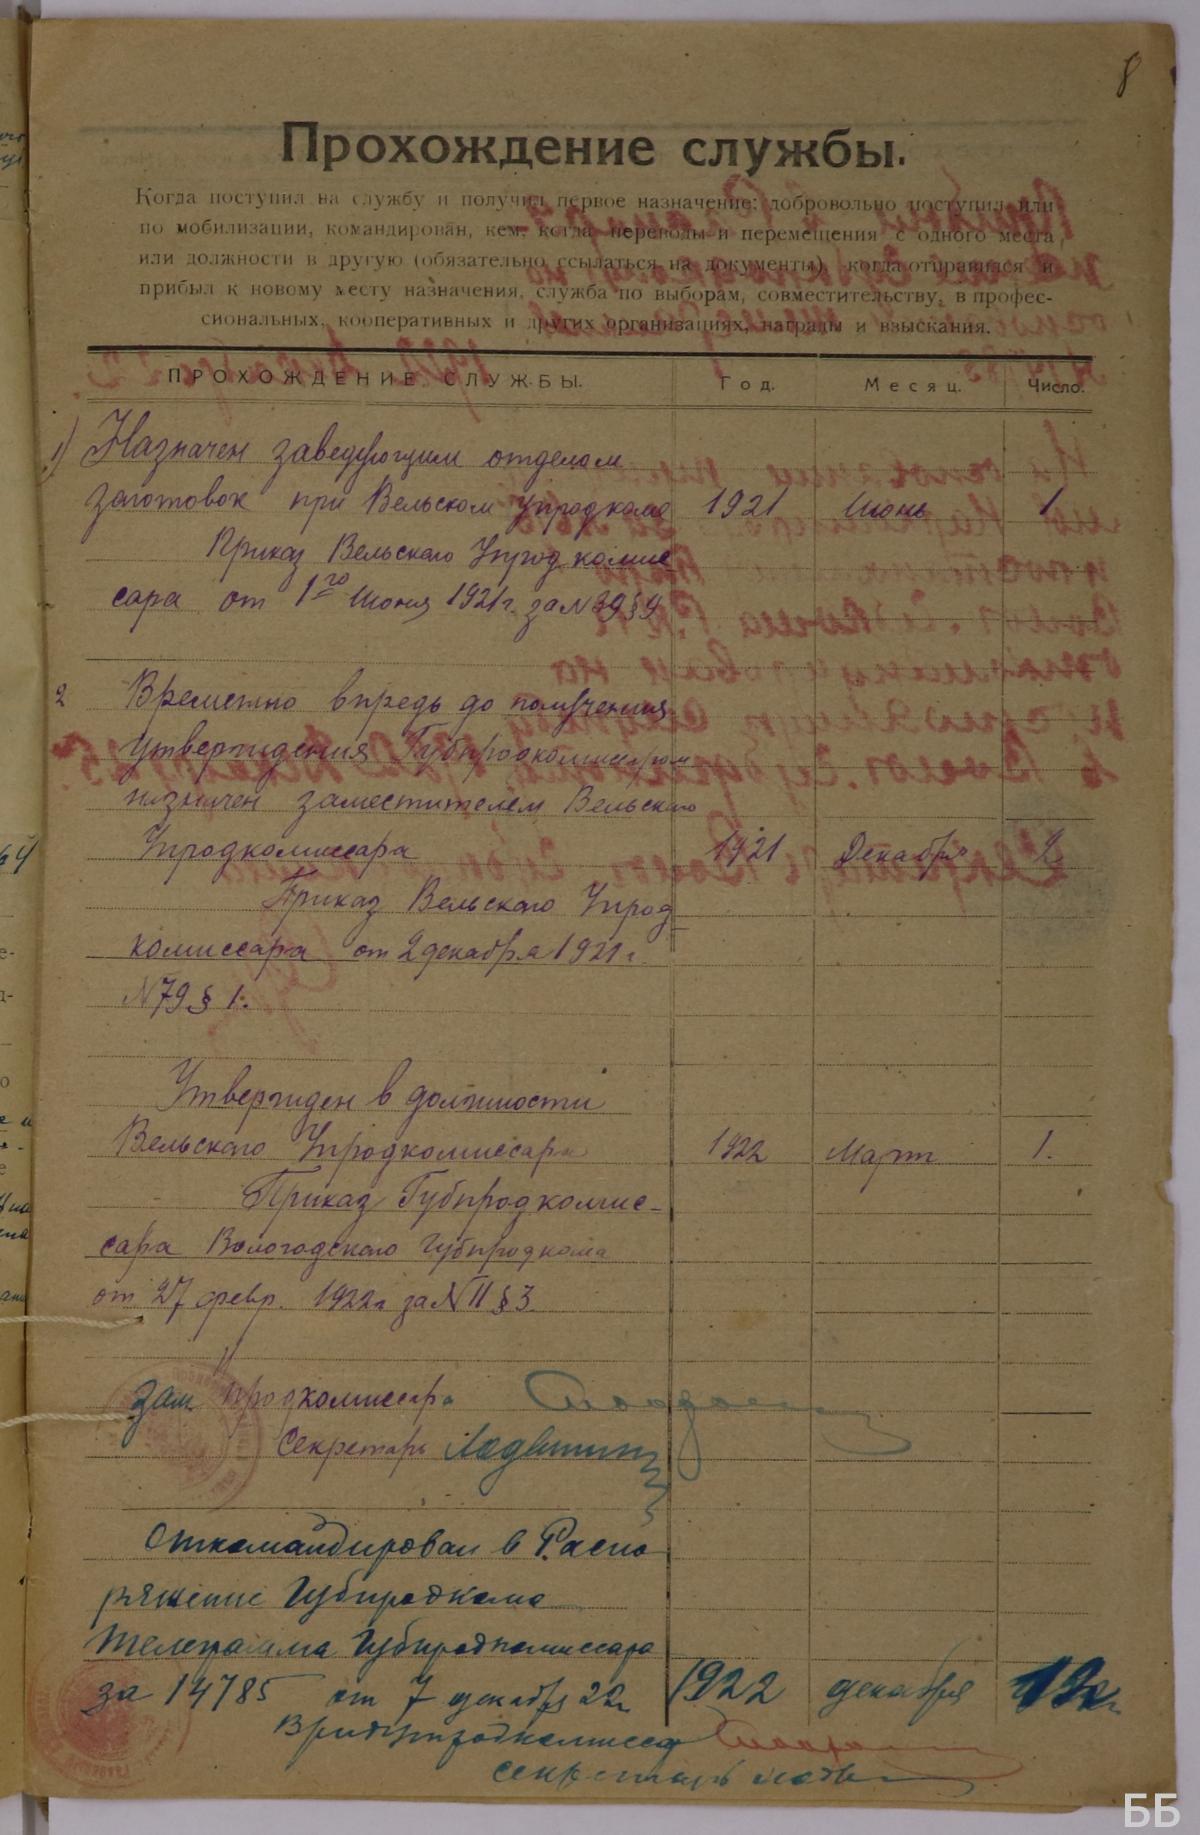 8
Прохождение службы.
Когда поступил на службу и получил первое назначение: добровольно поступил или
по мобилизации, командирован, кем, когда переводы и перемещения с одного места
или должности в другую (обязательно ссылаться на документы), когда отправился и
прибыл к новому месту назначения, служба по выборам, совместительству, в профес-
сиональных, кооперативных и других организациях, награды и взыскания.
ПРОХОЖДЕНИЕ СЛУЖБЫ. Год. Месяц. Число.
1) Назначен заведующим отделом
заготовок при Вельском Упродкоме 1921 Июнь 1
Приказ Вельского Упродкомис
сара от 1го Июня 1921 г. за N 39 § 9
2 Временно впредь до получения
утверждения Губпродкомиссаром
назначен заместителем Вельского
Упродкомиссара 1921 Декабрь 2
Приказ Вельского Упрод
комиссара от 2 декабря 1921 г.
N 79 § 1.
Утвержден в должности
Вельского Упродкомиссара 1922 Март 1.
Приказ Губпродкомис-
сара Вологодского Губпродкома
от 27 февр. 1922 г за N 11 § 3
Зам Упродкомиссара
Секретарь
Откомандирован в Распо
ряжение Губпродкома
телеграмма Губпродкомиссара
за 14785 от 7 декабря 22 г 1922 декабря 12
Врид Упродкомиссар
секретарь
ББ